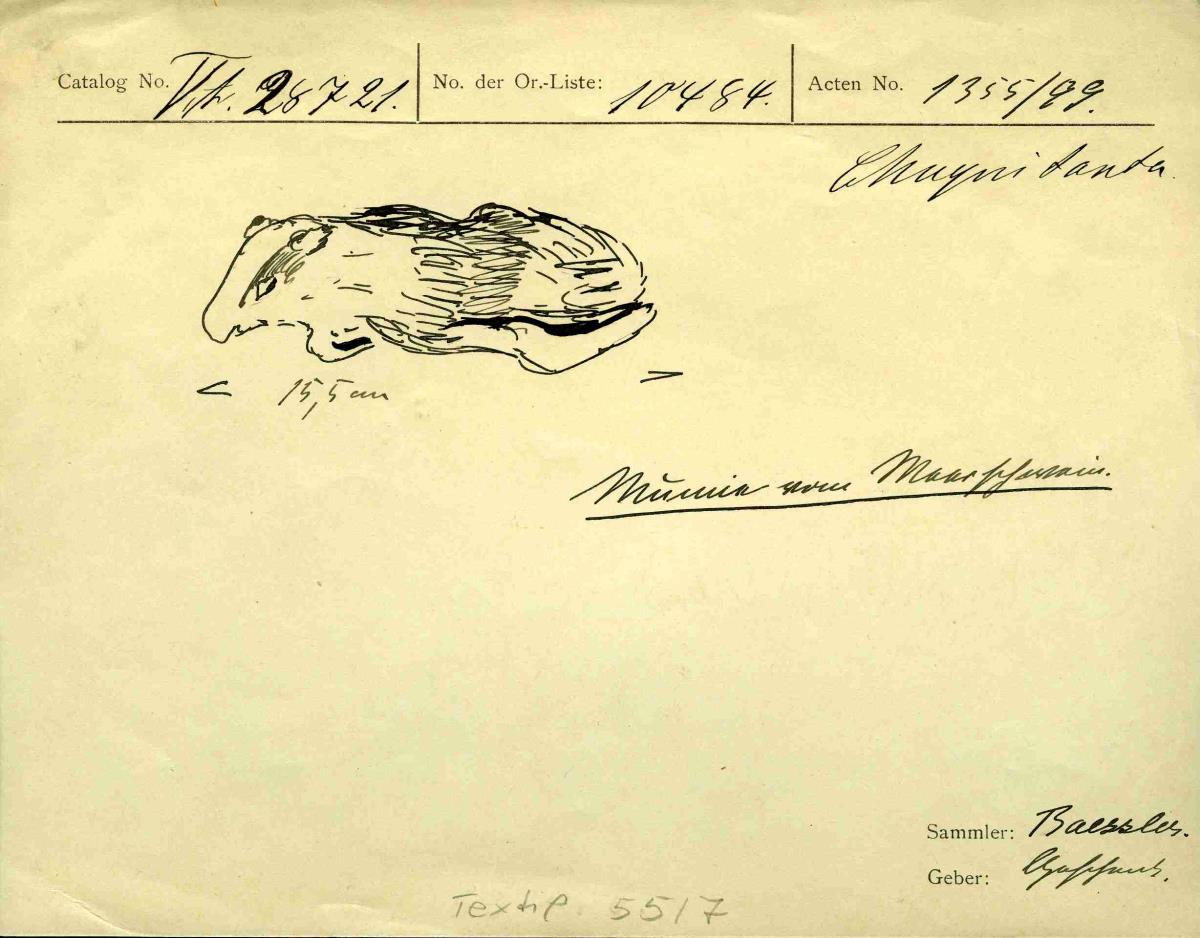 Catalog No. V.A. 28721. No. der Or.-Liste: 10484. Acten No. 1355/99.
Chuquitanta
15,5 cm
Mumie vom Meerschwein.
Sammler: Baessler.
Geber: Geschenk.
Textil. 5517